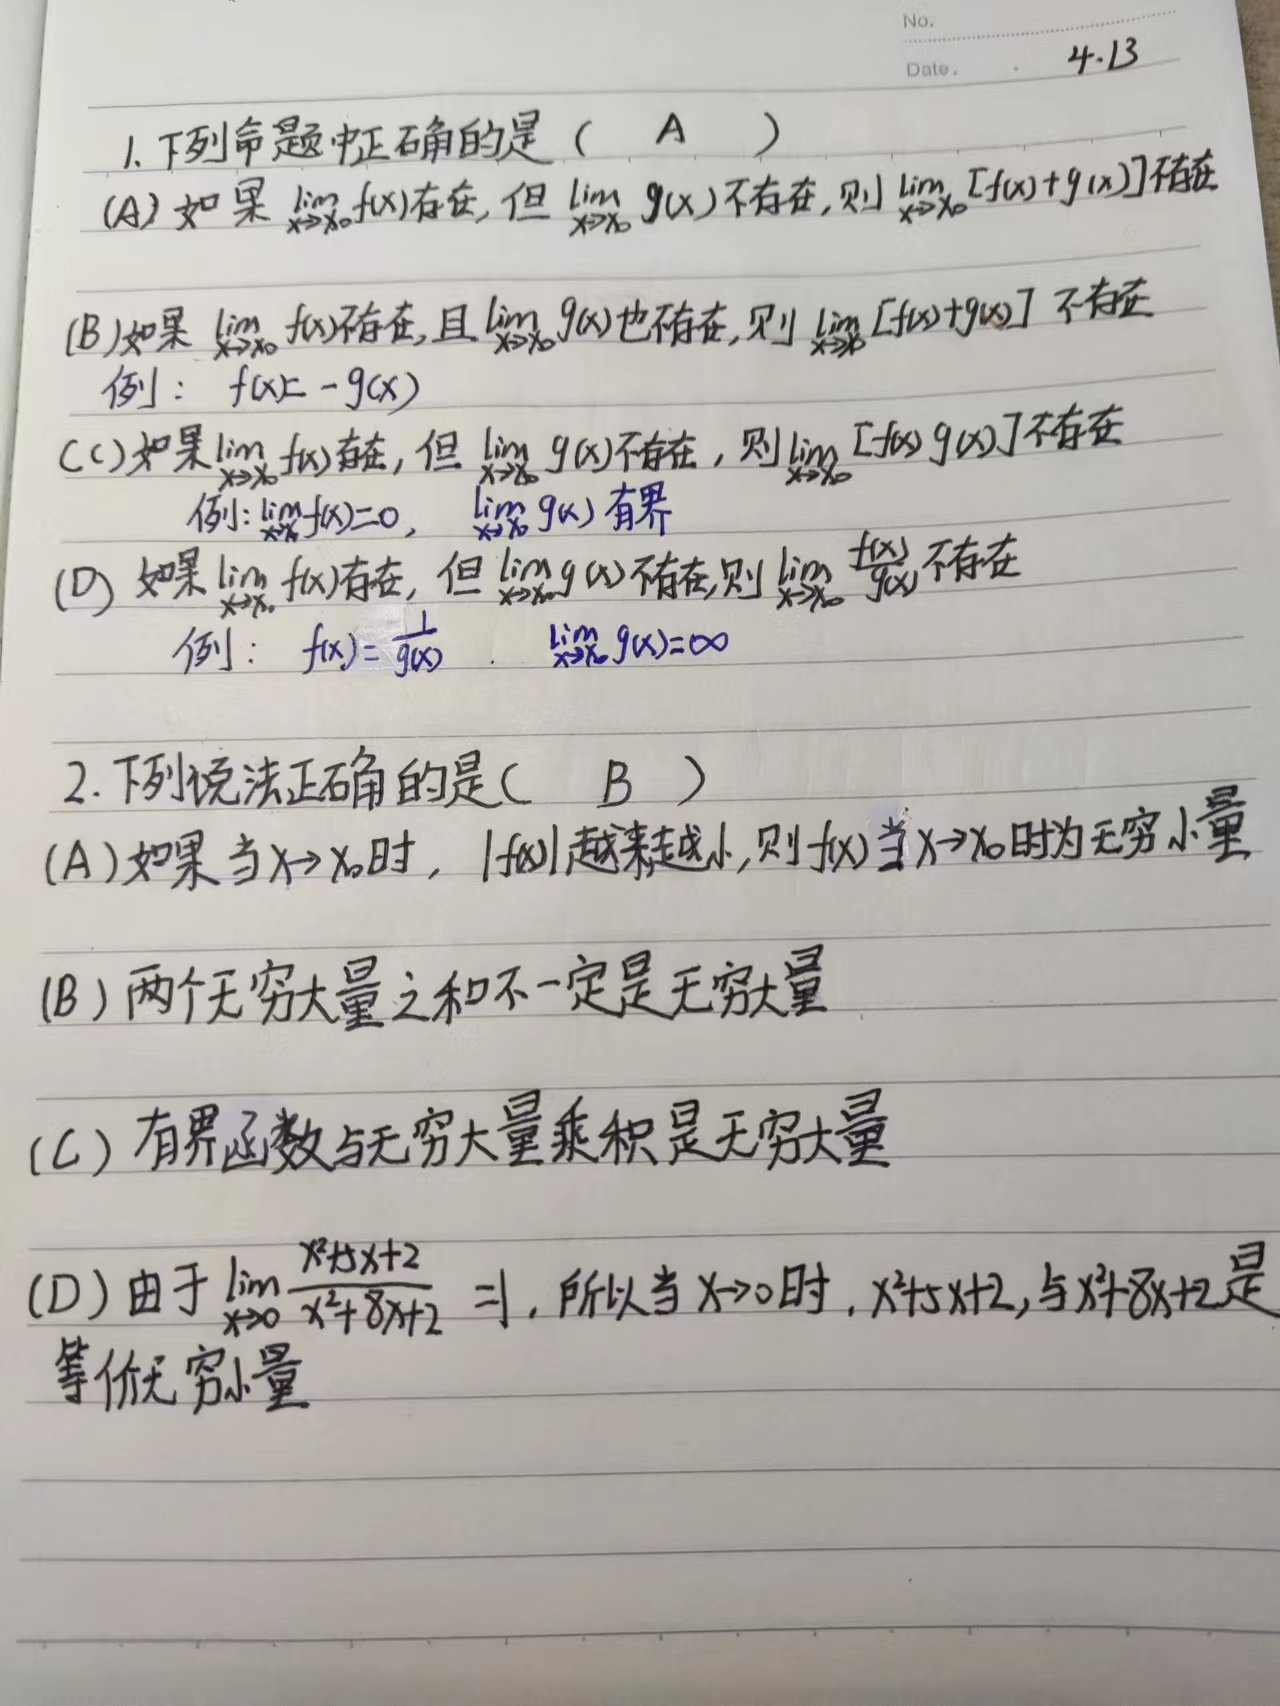 No.
Date. 4.13
1.下列命题中正确的是( A )
(A)如果 lim x→x₀ f(x)存在,但 lim x→x₀ g(x)不存在,则 lim x→x₀ [f(x)+g(x)]不存在
(B)如果 lim x→x₀ f(x)不存在,且 lim x→x₀ g(x)也不存在,则 lim x→x₀ [f(x)+g(x)] 不存在
例: f(x)=-g(x)
(C)如果 lim x→x₀ f(x)存在,但 lim x→x₀ g(x)不存在,则 lim x→x₀ [f(x)g(x)]不存在
例: lim x→x₀ f(x)=0, lim x→x₀ g(x)有界
(D)如果 lim x→x₀ f(x)存在,但 lim x→x₀ g(x)不存在,则 lim x→x₀ f(x)/g(x) 不存在
例: f(x)=1/g(x) . lim x→x₀ g(x)=∞
2.下列说法正确的是( B )
(A)如果当x→x₀时,|f(x)|越来越小,则f(x)当x→x₀时为无穷小量
(B)两个无穷大量之和不一定是无穷大量
(C)有界函数与无穷大量乘积是无穷大量
(D)由于 lim x→0 (x²+5x+2)/(x²+8x+2) =1,所以当x→0时,x²+5x+2,与x²+8x+2是
等价无穷小量